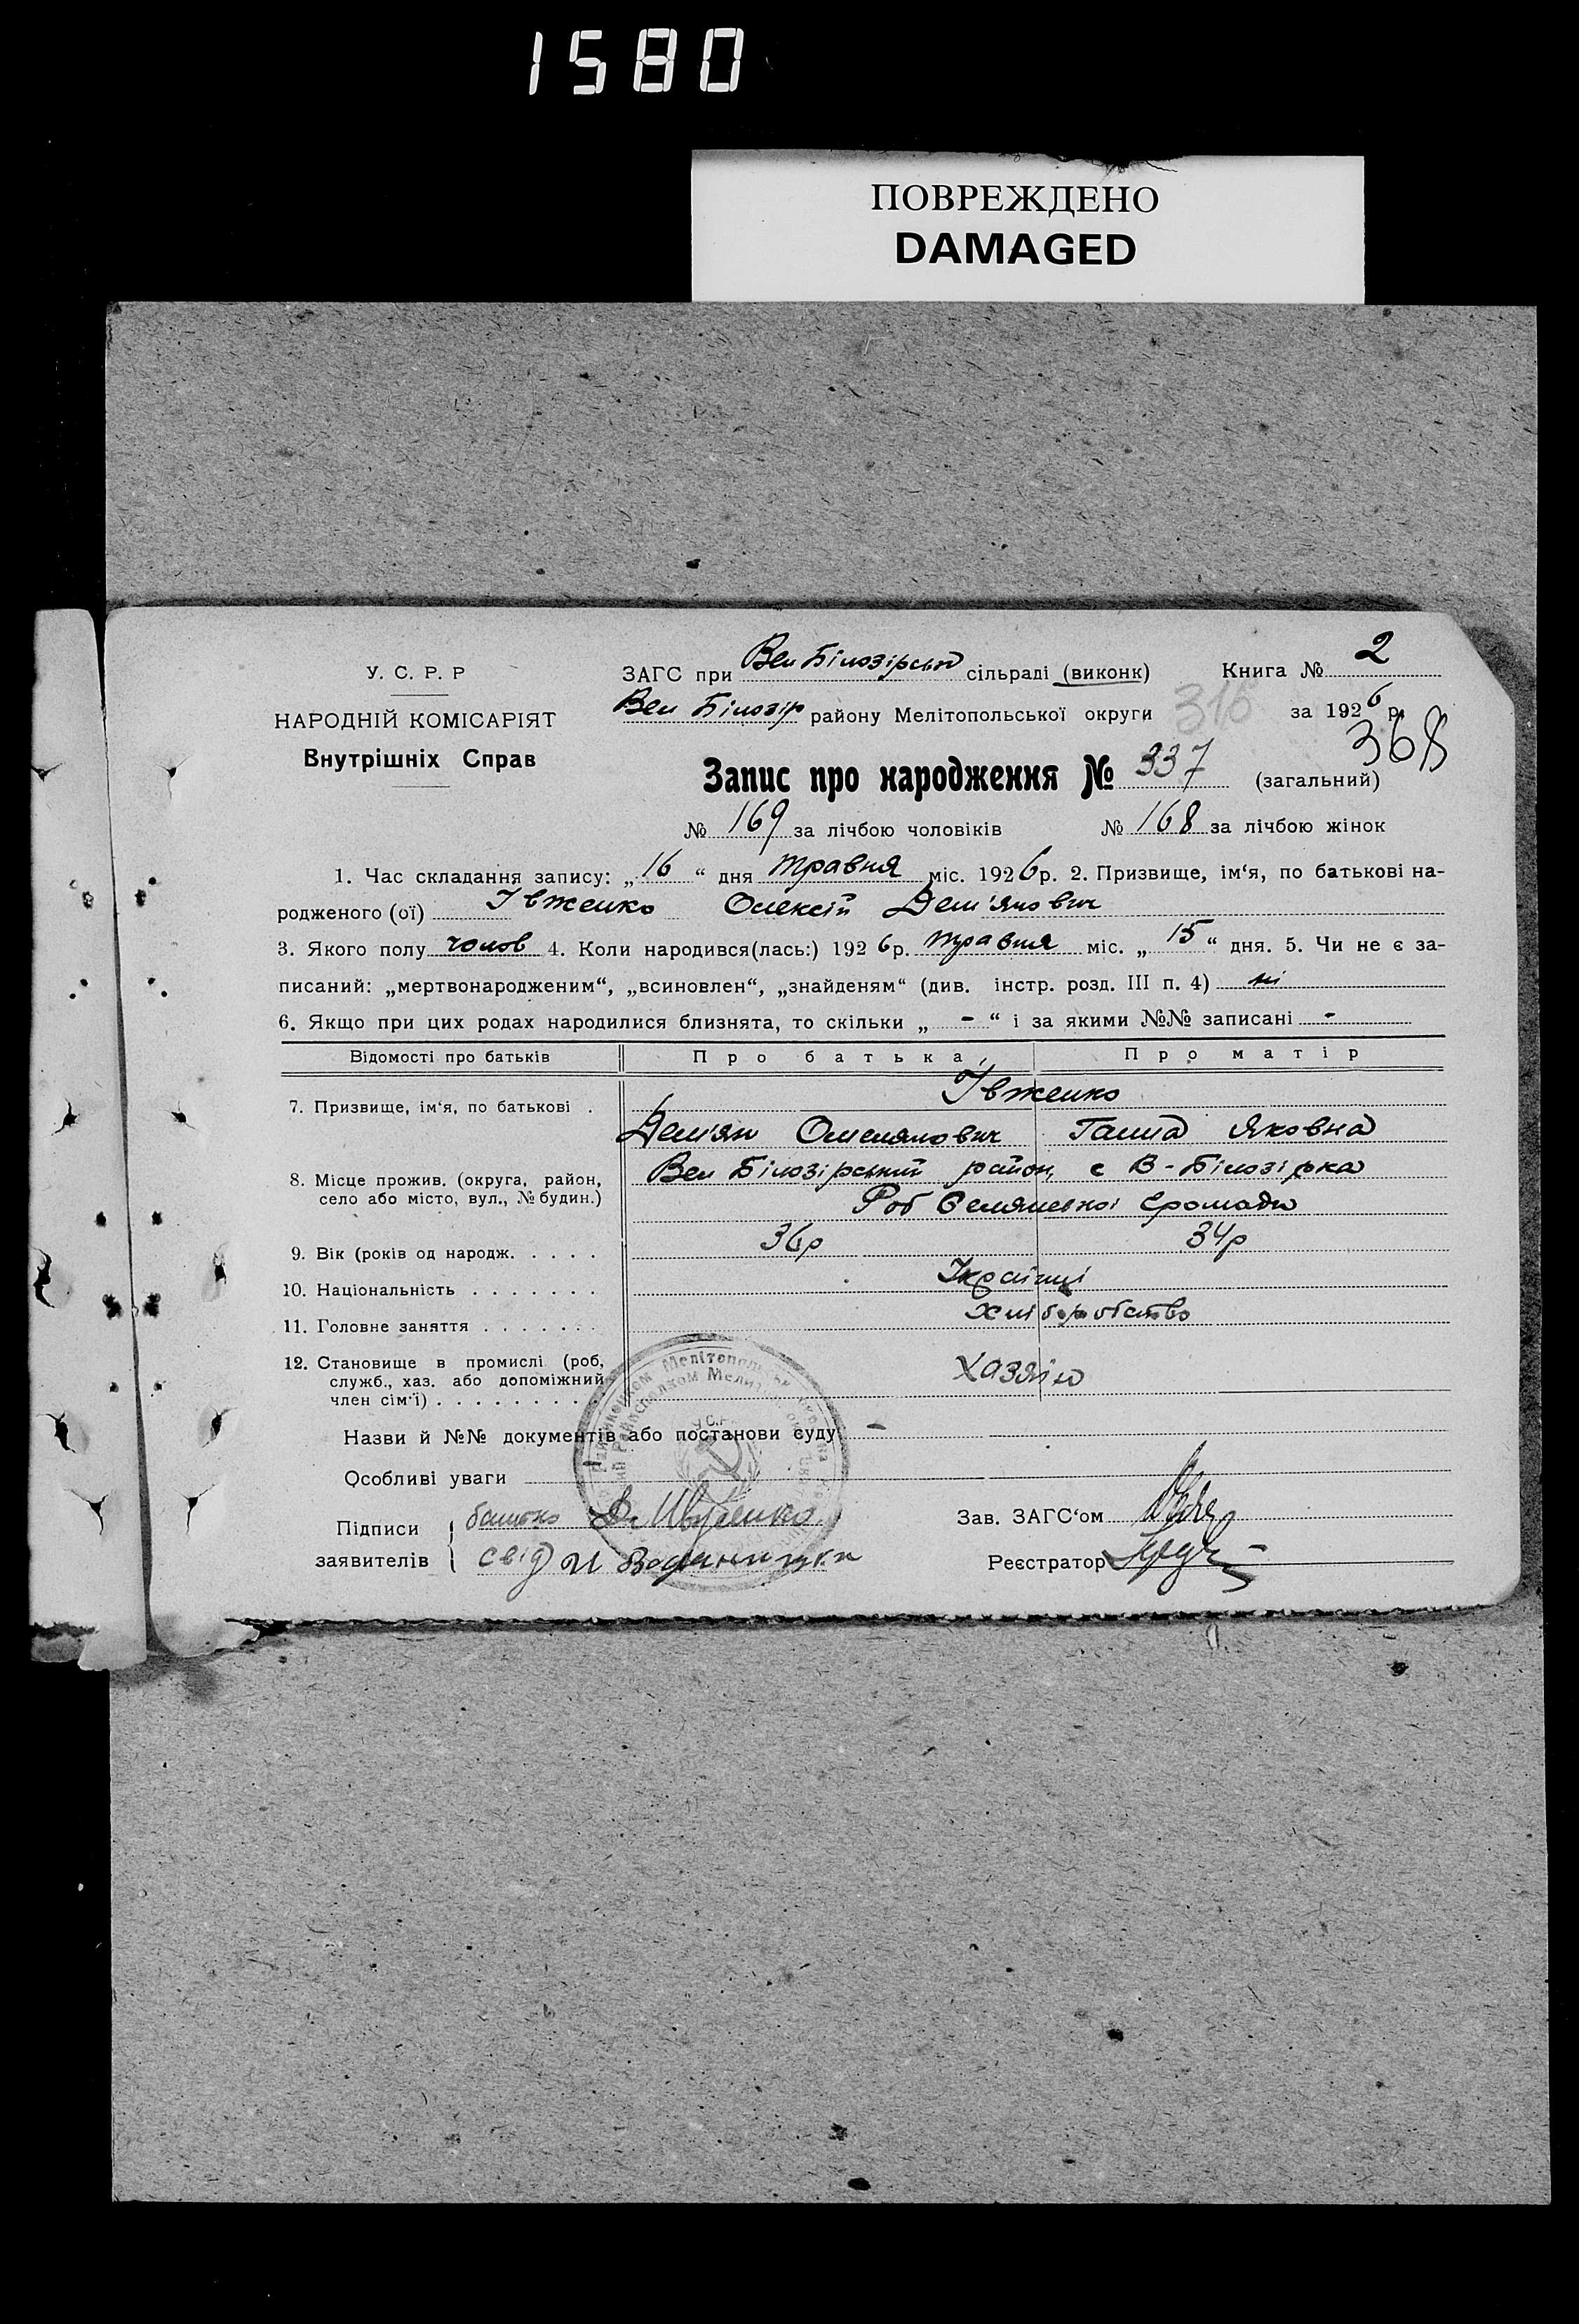 1580
ПОВРЕЖДЕНО
DAMAGED
У. С. Р. Р
НАРОДНІЙ КОМІСАРІЯТ
Внутрішніх Справ
ЗАГС при Вел Білозірській сільраді (виконк) Книга № 2
Вел Білозір району Мелітопольської округи 316 за 1926 р.
368
Запис про народження № 337 (загальний)
№ 169 за лічбою чоловіків № 168 за лічбою жінок
1. Час складання запису: „16“ дня травня міс. 1926 р. 2. Призвище, ім‘я, по батькові на-
родженого (ої) Івженко Олексій Дем'янович
3. Якого полу чолов 4. Коли народився(лась:) 1926 р. травня міс. „15“ дня. 5. Чи не є за-
писаний: „мертвонародженим“, „всиновлен“, „знайденям“ (див. інстр. розд. III п. 4) ні
6. Якщо при цих родах народилися близнята, то скільки „ - “ і за якими №№ записані -
Відомості про батьків Про батька Про матір
7. Призвище, ім‘я, по батькові . Івженко
Дем'ян Омелянович Ганна Яковна
8. Місце прожив. (округа, район, село або місто, вул., № будин.) Вел Білозірський район, с В-Білозірка
Роб Селянської Громади
9. Вік (років од народж. . . . . 36р 34р
10. Національність . . . . . . . Українці
11. Головне заняття . . . . . . . Хліборобство
12. Становище в промислі (роб,
служб., хаз. або допоміжний
член сім‘ї) . . . . . . . . . Хазяін
Назви й №№ документів або постанови суду -
Особливі уваги
Підписи заявителів батько Д. Ивженко
свід
Зав. ЗАГС‘ом
Реєстратор